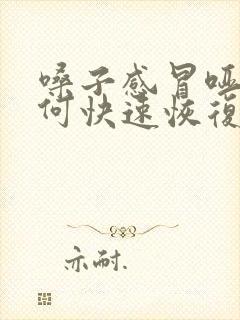 嗓子感冒哑
何快速恢復
亦耐.